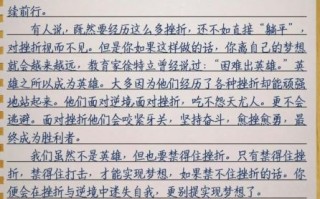 续前行。
有人说，既然要经历这么多挫折，还不如直接“躺平”，
对挫折视而不见。但是你如果这样做的话，你离自己的梦想
就会越来越远，教育家徐特立曾经说过：“困难出英雄。”英
雄之所以成为英雄。大多因为他们经历了各种挫折却能顽强
地站起来。他们面对逆境，面对挫折，吃不怨天尤人。更不会
逃避。面对挫折他们会咬紧牙关，坚持奋斗，愈挫愈勇，最
终成为胜利者。
我们虽然不是英雄，但也要禁得住挫折。只有禁得住挫
折，禁得住打击，才能实现梦想，如果禁不住挫折的话。你便
会在挫折与逆境中迷失自我，更别提实现梦想了。